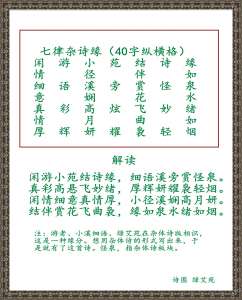 七律杂诗缘（40字纵横格）
闲 游 小 苑 结 诗 缘
情 径 伴 如
细 语 溪 旁 赏 怪 泉
意 娴 花 水
真 彩 高 炫 飞 妙 绪
情 月 曲 如
厚 辉 妍 耀 袅 轻 烟
解读
闲游小苑结诗缘，细语溪旁赏怪泉。
真彩高悬飞妙绪，厚辉妍耀袅轻烟。
闲情细意真情厚，小径溪娴高月妍。
结伴赏花飞曲袅，缘如泉水绪如烟。
注：游者、小溪细语、绿艺苑在杂体诗版相识，
这是一种缘分。想用杂体诗的形式写出来，于
是就有了这首诗。怪泉，指杂体诗板块。
诗图 绿艺苑